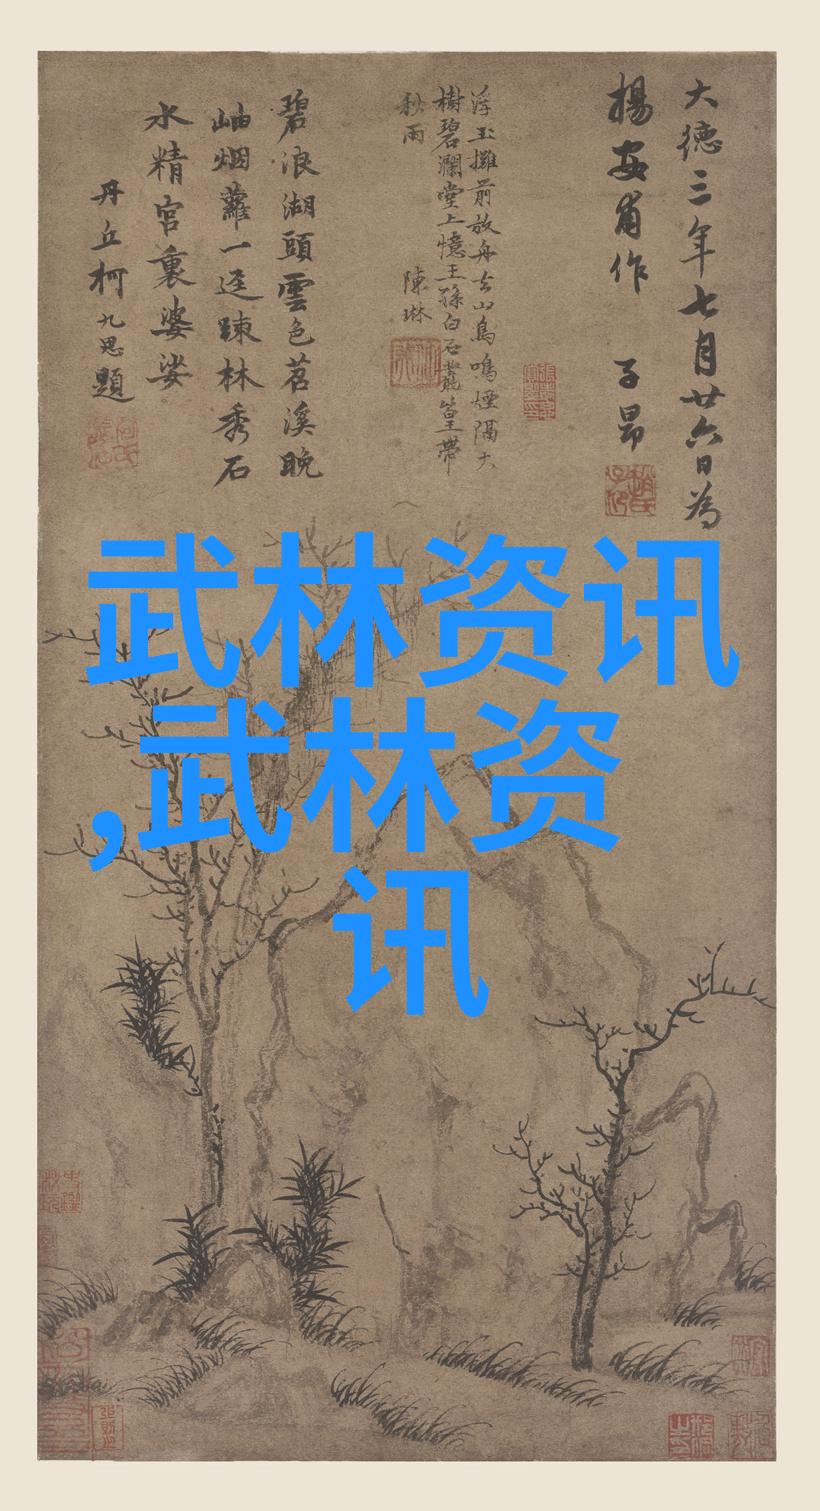 大德三年七月廿六日為
楊安甫作 子昂
浮玉攤前放舟去山鳥鳴煙隔大
樹碧瀾堂上憶王孫白石叢篁帶
秋雨 陳琳
碧浪湖頭雲色苕溪晚
岫烟蘿一逕踈林秀石
水精宮裏婆娑
丹丘柯九思題
武林资讯
,武林资
讯